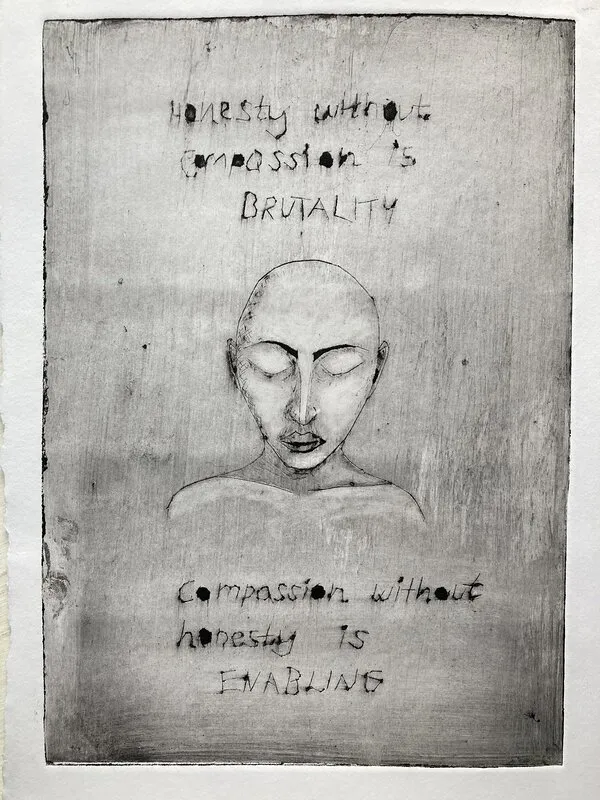 Honesty without
compassion is
BRUTALITY
Compassion without
honesty is
ENABLING